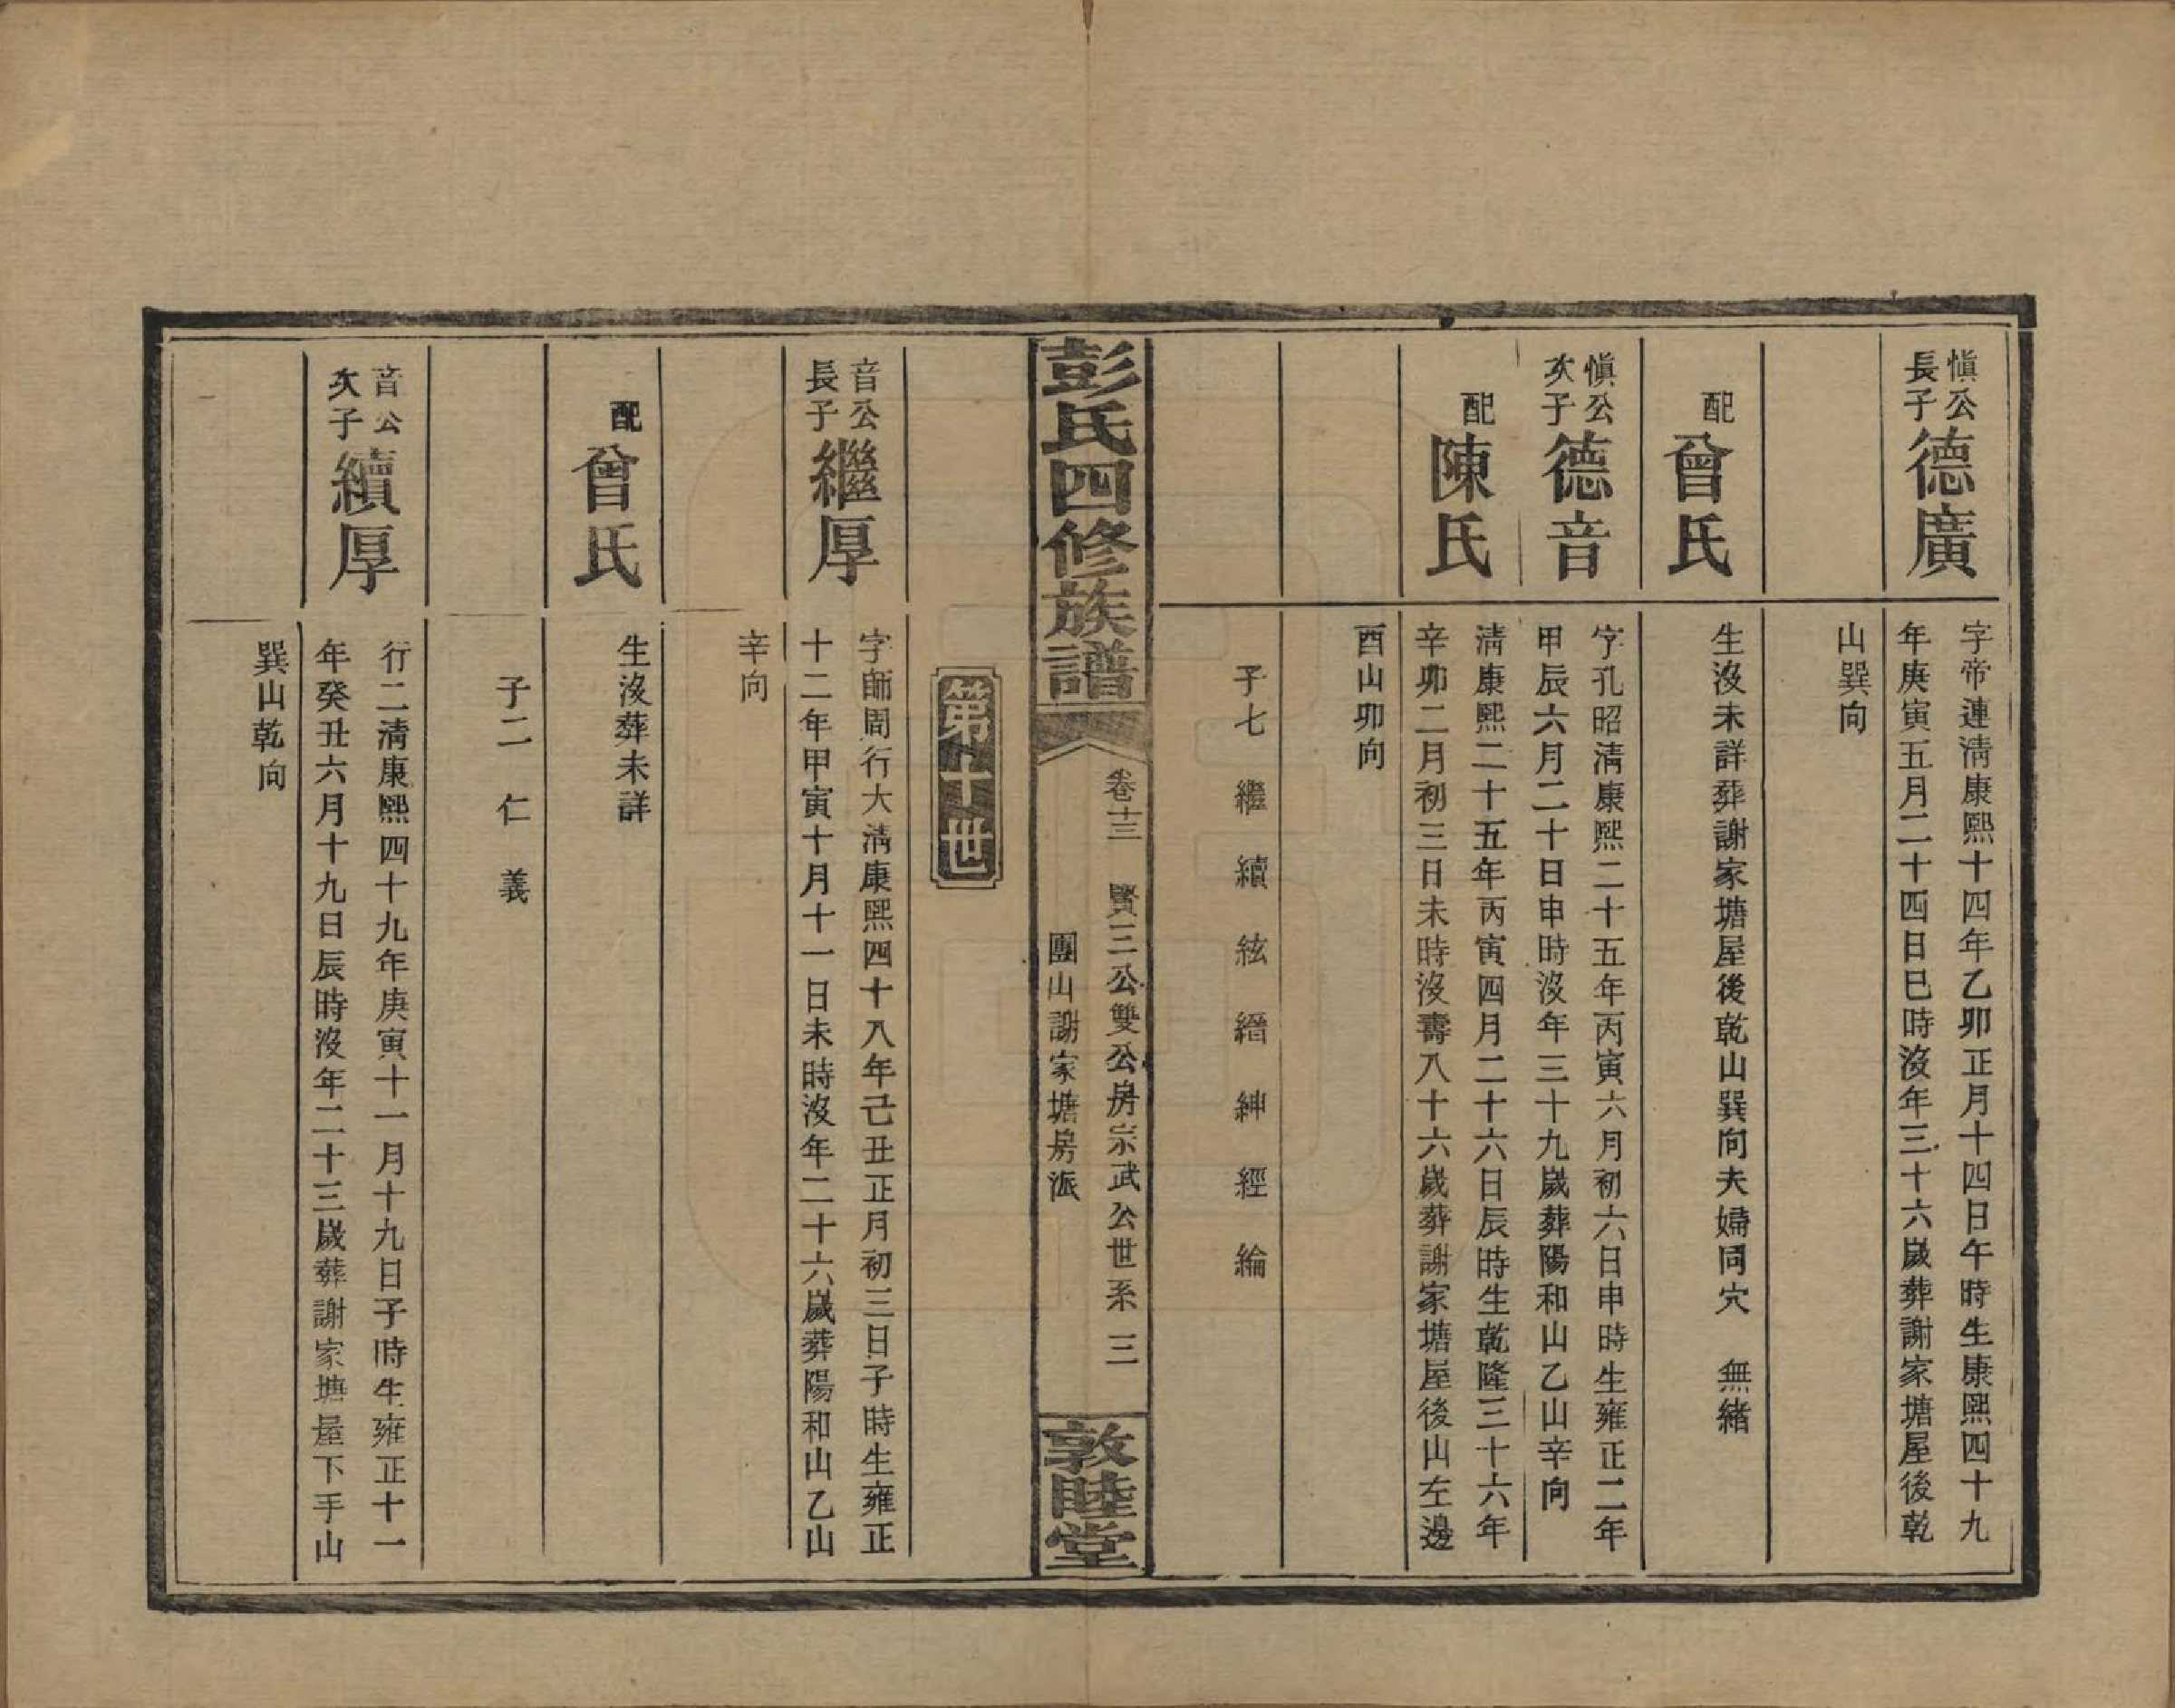 愼公
長子
德廣
字帝連淸康熙十四年乙卯正月十四日午時生康熙四十九
年庚寅五月二十四日巳時沒年三十六歲葬謝家塘屋後乾
山巽向
配
曾氏
生沒未詳葬謝家塘屋後乾山巽向夫婦同穴　無緒
愼公
次子
德音
字孔昭淸康熙二十五年丙寅六月初六日申時生雍正二年
甲辰六月二十日申時沒年三十九歲葬陽和山乙山辛向
配
陳氏
淸康熙二十五年丙寅四月二十六日辰時生乾隆三十六年
辛卯二月初三日未時沒壽八十六歲葬謝家塘屋後山左邊
酉山卯向
子七　繼　續　絃　縉　紳　經　綸
彭氏四修族譜
卷十三
賢三公雙公房宗武公世系　三
團山謝家塘房派
敦睦堂
第十世
音公
長子
繼厚
字師周行大淸康熙四十八年己丑正月初三日子時生雍正
十二年甲寅十月十一日未時沒年二十六歲葬陽和山乙山
辛向
配
曾氏
生沒葬未詳
子二　仁　義
音公
次子
續厚
行二淸康熙四十九年庚寅十一月十九日子時生雍正十一
年癸丑六月十九日辰時沒年二十三歲葬謝家塘屋下手山
巽山乾向